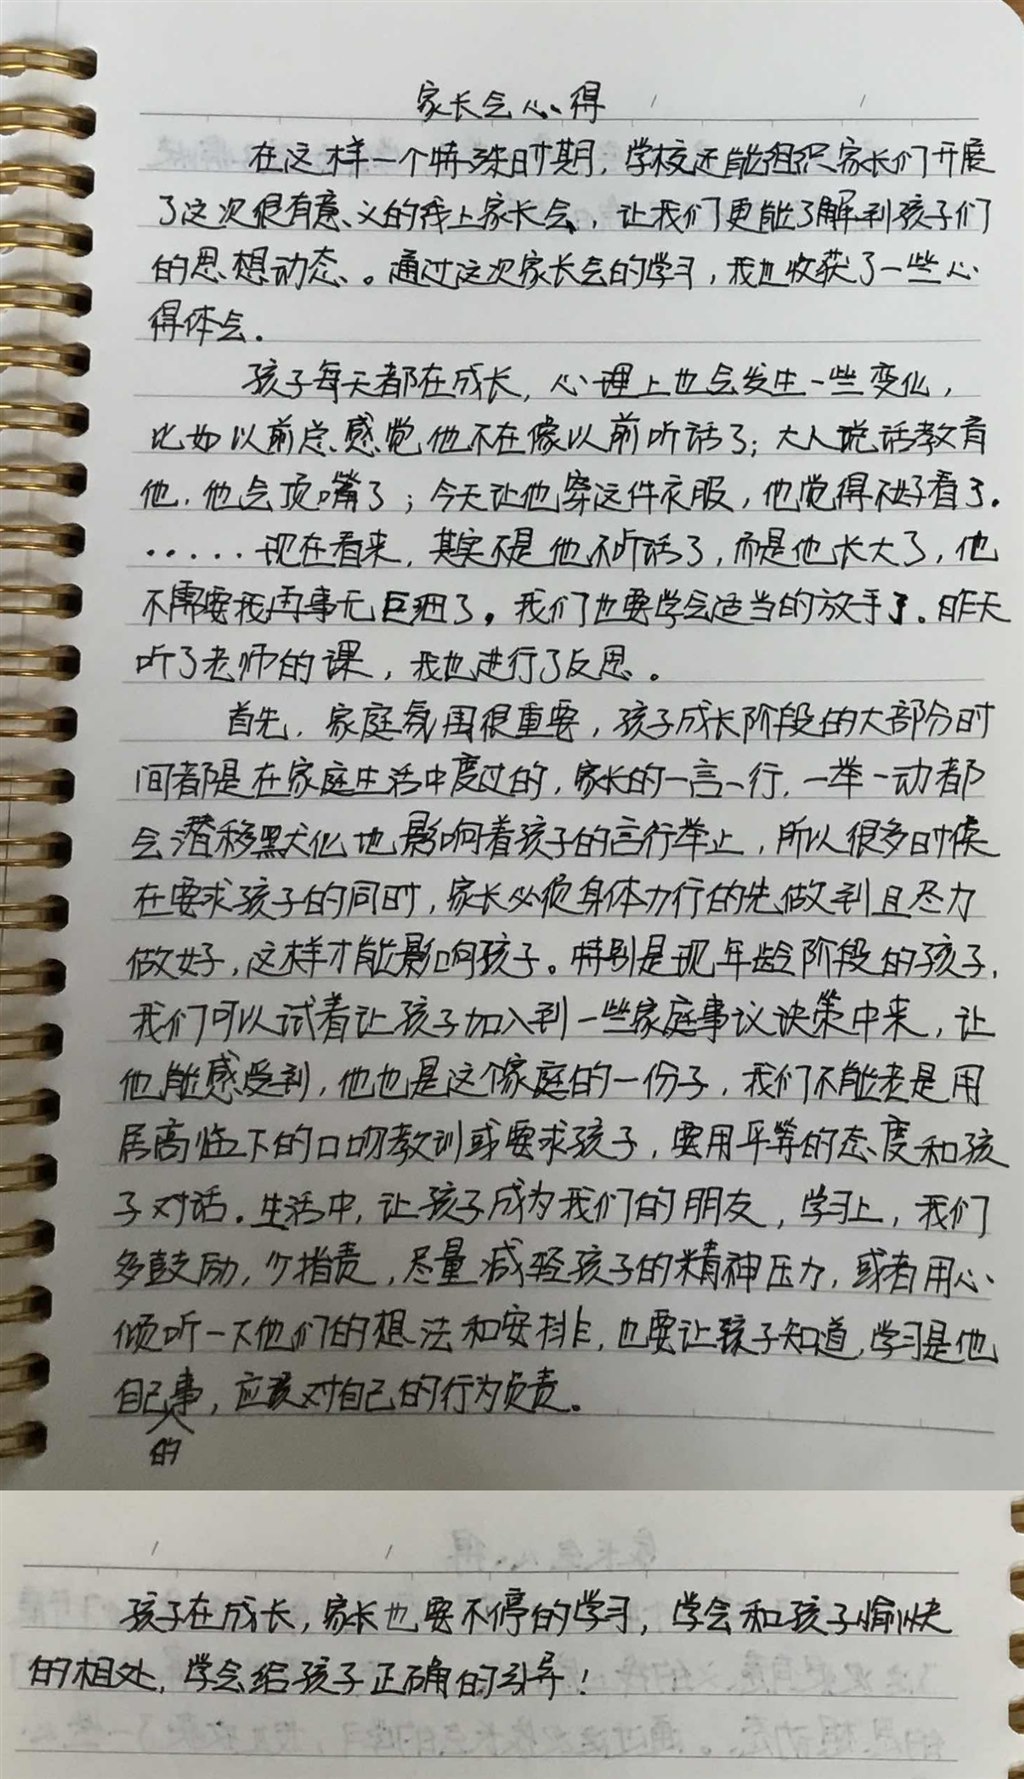 家长会心得
在这样一个特殊时期，学校还能组织家长们开展
了这次很有意义的线上家长会，让我们更能了解到孩子们
的思想动态。通过这次家长会的学习，我也收获了一些心
得体会。
孩子每天都在成长，心理上也会发生一些变化，
比如以前总感觉他不在像以前听话了；大人说话教育
他，他会顶嘴了；今天让他穿这件衣服，他觉得不好看了。
······现在看来，其实不是他不听话了，而是他长大了，他
不需要我再事无巨细了。我们也要学会适当的放手了。昨天
听了老师的课，我也进行了反思。
首先，家庭氛围很重要，孩子成长阶段的大部分时
间都是在家庭生活中度过的，家长的一言一行，一举一动都
会潜移默化地影响着孩子的言行举止，所以很多时候
在要求孩子的同时，家长必须身体力行的先做到且尽力
做好，这样才能影响孩子。特别是现年龄阶段的孩子，
我们可以试着让孩子加入到一些家庭事议决策中来，让
他能感受到，他也是这个家庭的一份子，我们不能老是用
居高临下的口吻教训或要求孩子，要用平等的态度和孩
子对话。生活中，让孩子成为我们的朋友，学习上，我们
多鼓励，少指责，尽量减轻孩子的精神压力，或者用心
倾听一下他们的想法和安排，也要让孩子知道，学习是他
自己的事，应该对自己的行为负责。
孩子在成长，家长也要不停的学习，学会和孩子愉快
的相处，学会给孩子正确的引导！